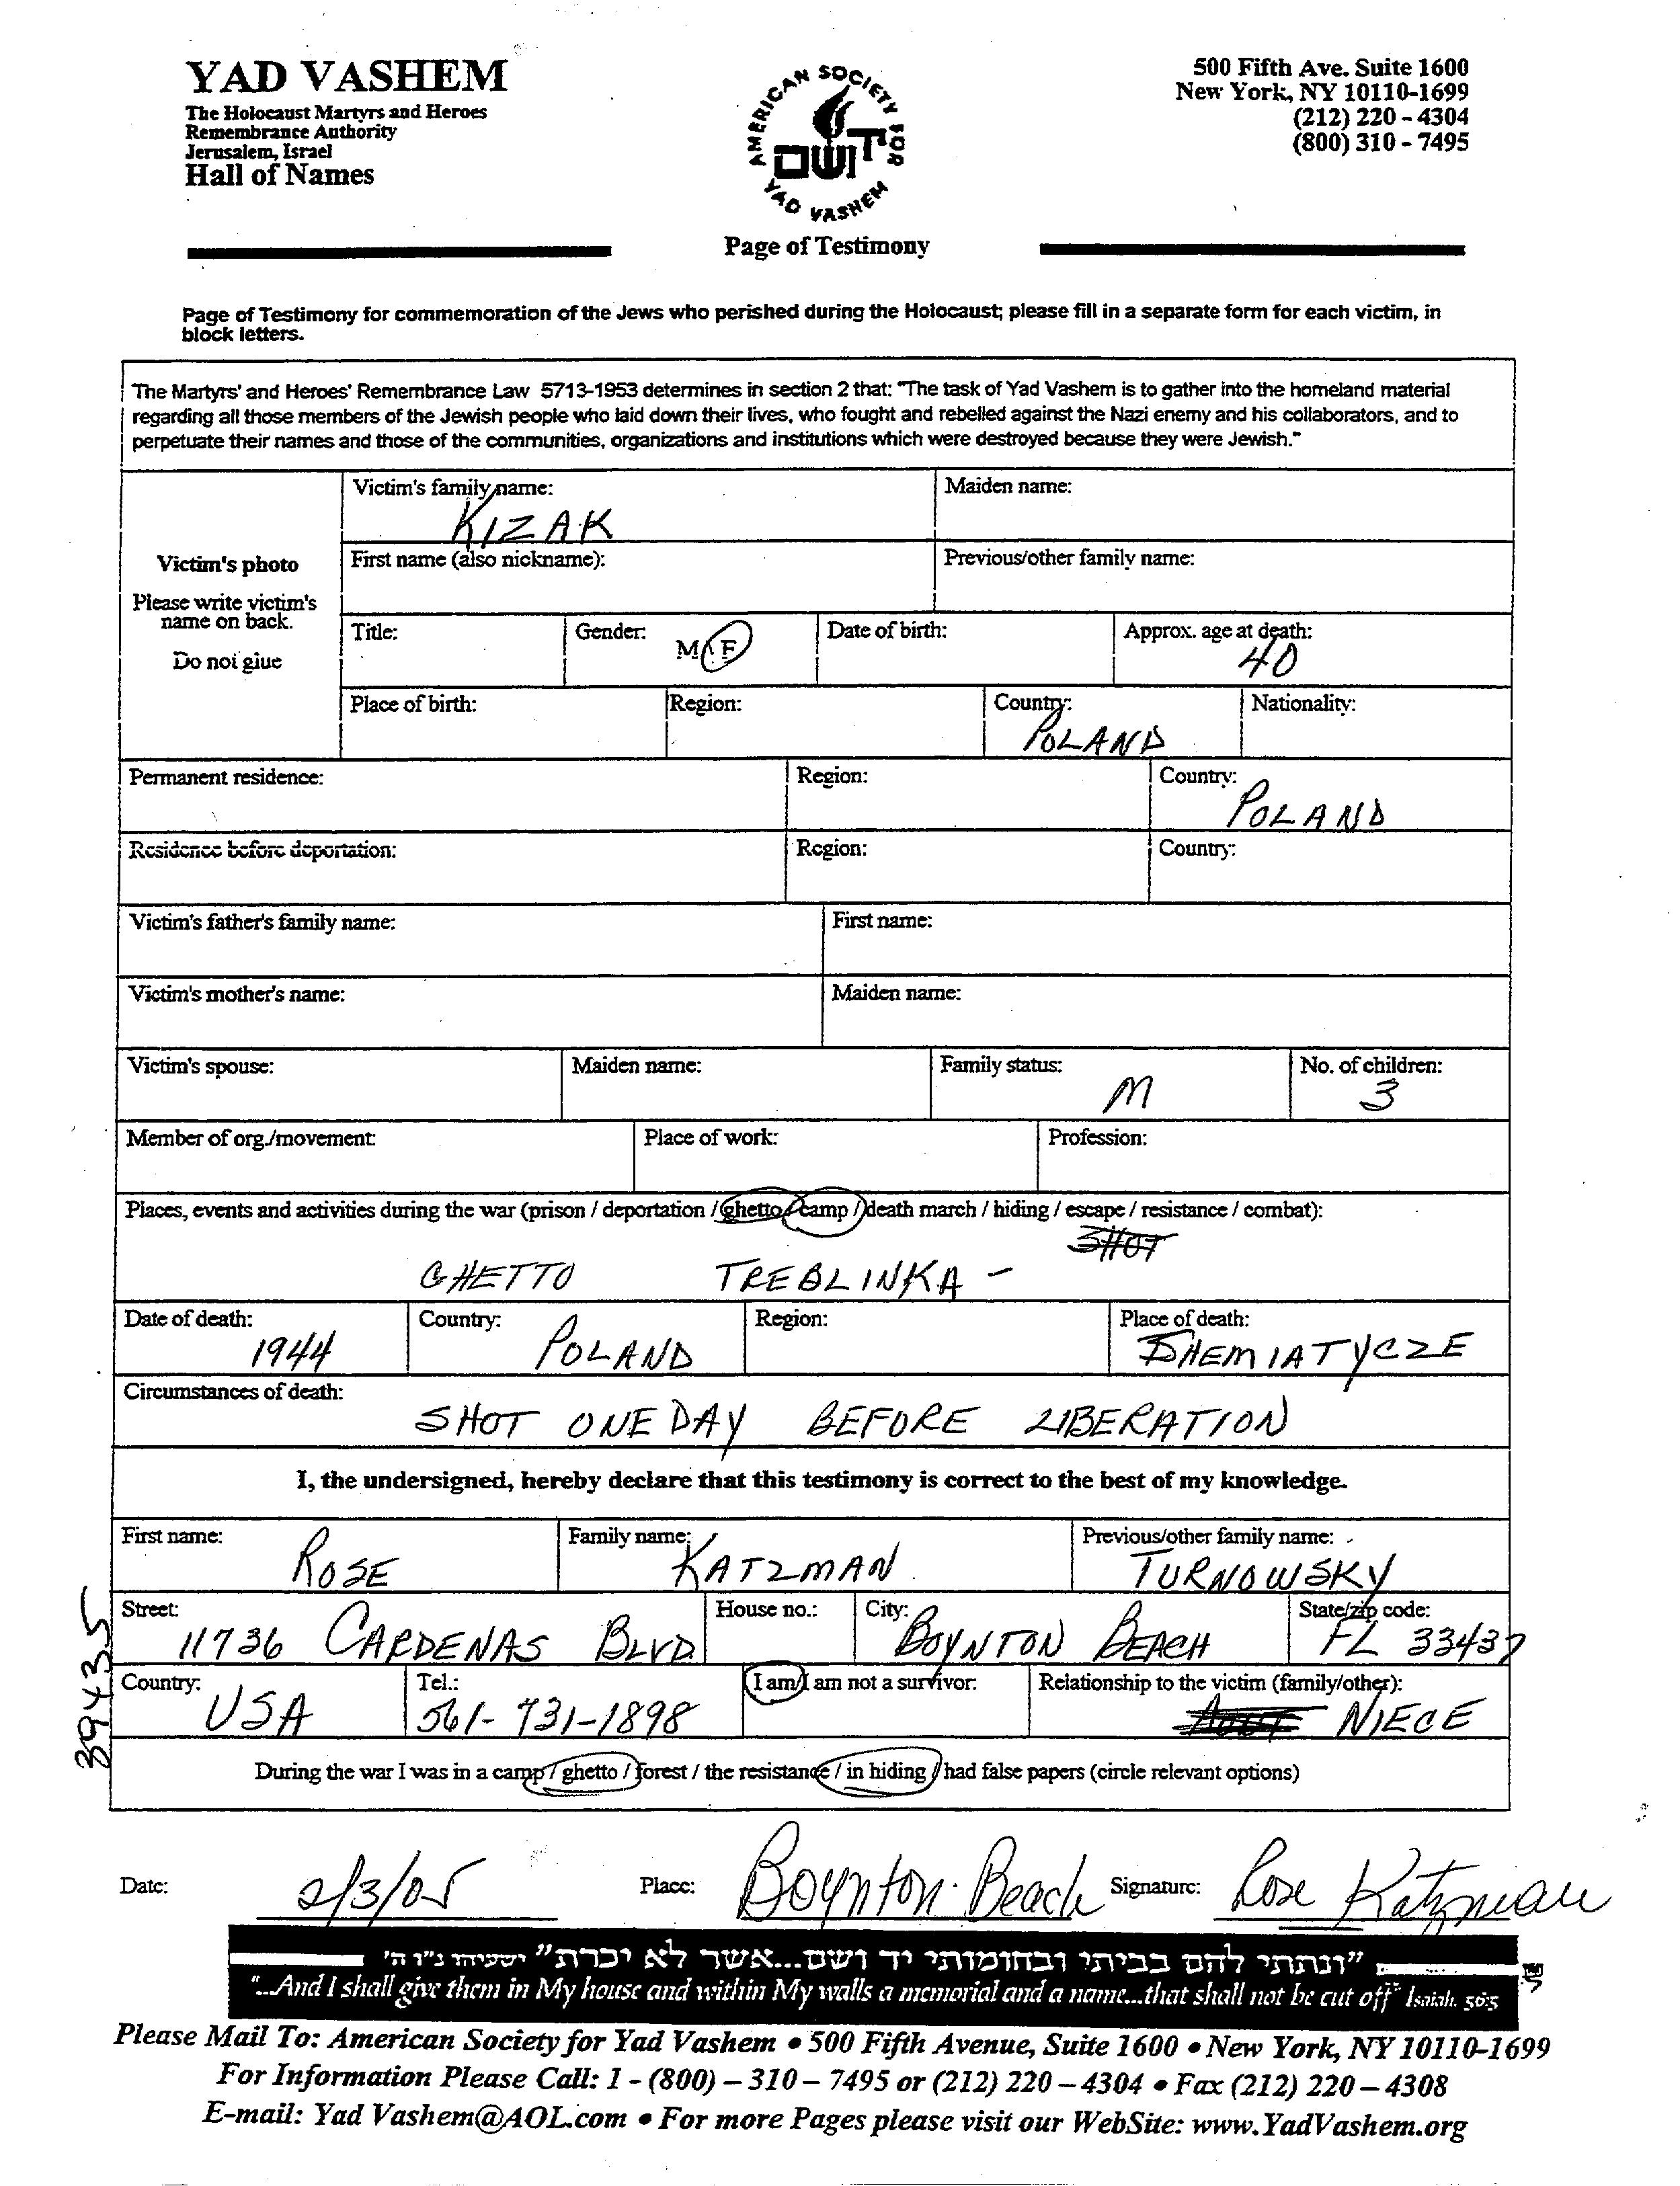 YAD VASHEM
The Holocaust Martyrs and Heroes
Remembrance Authority
Jerusalem, Israel
Hall of Names
AMERICAN SOCIETY FOR
YAD VASHEM
ושם
יד
500 Fifth Ave. Suite 1600
New York, NY 10110-1699
(212) 220 - 4304
(800) 310 - 7495
Page of Testimony
Page of Testimony for commemoration of the Jews who perished during the Holocaust; please fill in a separate form for each victim, in
block letters.
The Martyrs' and Heroes' Remembrance Law 5713-1953 determines in section 2 that: "The task of Yad Vashem is to gather into the homeland material
regarding all those members of the Jewish people who laid down their lives, who fought and rebelled against the Nazi enemy and his collaborators, and to
perpetuate their names and those of the communities, organizations and institutions which were destroyed because they were Jewish."
Victim's photo
Please write victim's
name on back.
Do not glue
Victim's family name: Maiden name:
KIZAK
First name (also nickname): Previous/other family name:
Title: Gender: M \ F Date of birth: Approx. age at death:
40
Place of birth: Region: Country: Nationality:
POLAND
Permanent residence: Region: Country:
POLAND
Residence before deportation: Region: Country:
Victim's father's family name: First name:
Victim's mother's name: Maiden name:
Victim's spouse: Maiden name: Family status: No. of children:
M 3
Member of org./movement: Place of work: Profession:
Places, events and activities during the war (prison / deportation / ghetto / camp / death march / hiding / escape / resistance / combat):
SHOT
GHETTO TREBLINKA -
Date of death: Country: Region: Place of death:
1944 POLAND SHEMIATYCZE
Circumstances of death:
SHOT ONE DAY BEFORE LIBERATION
I, the undersigned, hereby declare that this testimony is correct to the best of my knowledge.
First name: Family name: Previous/other family name:
ROSE KATZMAN TURNOWSKY
Street: House no.: City: State/zip code:
11736 CARDENAS BLVD BOYNTON BEACH FL 33437
Country: Tel.: I am/I am not a survivor: Relationship to the victim (family/other):
USA 561-731-1898 NIECE
During the war I was in a camp / ghetto / forest / the resistance / in hiding / had false papers (circle relevant options)
394435
Date: 2/3/05 Place: Boynton Beach Signature: Rose Katzman
"ונתתי להם בביתי ובחומותי יד ושם...אשר לא יכרת" ישעיהו נ"ו ה'
"...And I shall give them in My house and within My walls a memorial and a name...that shall not be cut off" Isaiah. 56:5
Please Mail To: American Society for Yad Vashem • 500 Fifth Avenue, Suite 1600 • New York, NY 10110-1699
For Information Please Call: 1 - (800) – 310 – 7495 or (212) 220 – 4304 • Fax (212) 220 – 4308
E-mail: Yad Vashem@AOL.com • For more Pages please visit our WebSite: www.YadVashem.org